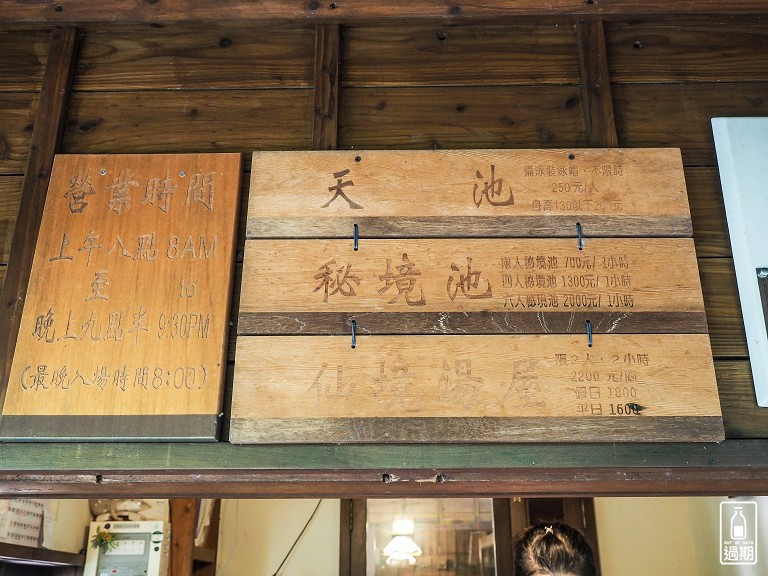 營業時間
上午八點 8AM
至 to
晚上九點半 9:30PM
(最晚入場時間8:00)
天池
備泳裝泳帽,不限時
250元/人
身高130以下
秘境池
兩人秘境池 700元/1小時
四人秘境池 1300元/1小時
八人秘境池 2000元/1小時
仙境湯屋
限2人,2小時
2200 元/間
假日 1800
平日 1600
OUT OF DATE
過期